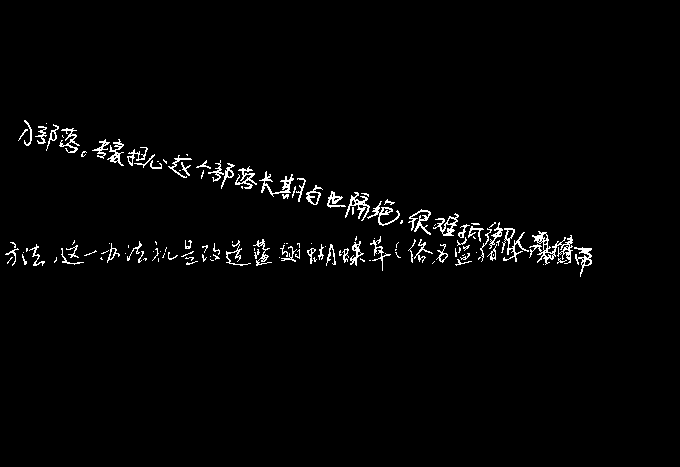 部落。专家担心这个部落长期与世隔绝,很难抵御
方法,这一办法就是改造蓝翅蝴蝶草(俗名蓝猪